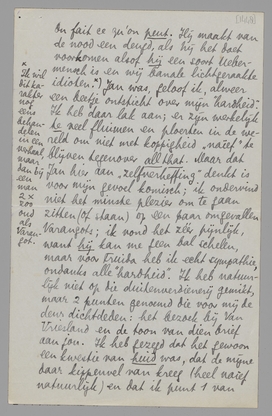 On fait ce qu'on peut. Hij maakt van
de nood een deugd, als hij het doet
voorkomen alsof hij een soort Ueber-
mensch is en wij banale lichtgeraakte
idioten.") Jan was, geloof ik, alweer
een beetje ontsticht over mijn "hardheid".
Ik heb daar lak aan; er zijn werkelijk
te veel fluimen en ploerten in de we-
reld om niet met koppigheid "naïef" te
blijven tegenover all that. Maar dat
Jan hier aan "zelfverheffing" denkt is
voor mijn gevoel komisch; ik ondervind
niet het minste plezier om te gaan
zitten (of staan) op een paar omgevallen
Varangots; ik vond het zéér pijnlijk,
want hij kan me geen bal schelen,
maar voor Truida heb ik echt sympathie,
ondanks alle "hardheid". Ik heb natuur-
lijk niet op die duitenverdienerij gemikt,
maar 2 punten genoemd die voor mij de
deur dichtdeden: het bezoek bij Van
Vriesland en de toon van dien brief
aan jou. Ik heb gezegd dat het gewoon
een kwestie van huid was, dat de mijne
daar kippenvel van kreeg (heel naïef
natuurlijk) en dat ik punt 1 van
* Ik wil
dit ka-
rakter
nog
eens
behan-
delen
in een
verhaal
maar
dan bij
een
man
2 x
zoo
oud
als
Varan-
got.